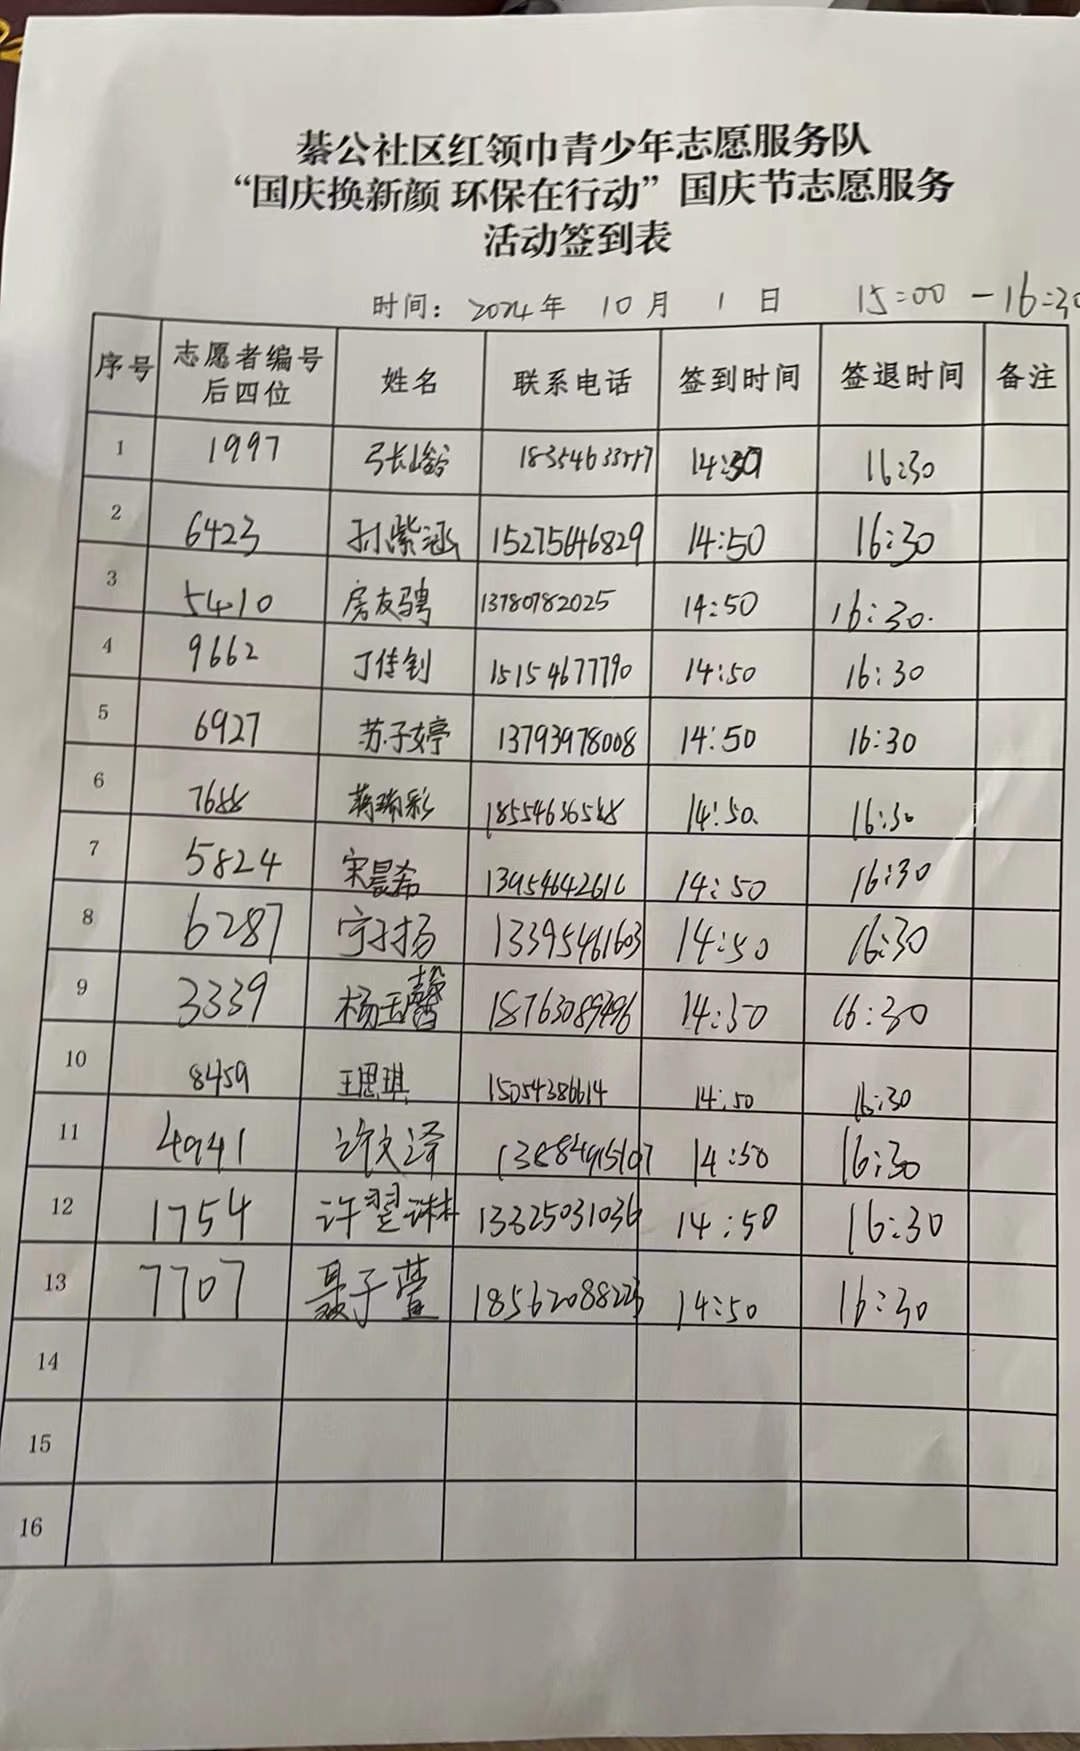 綦公社区红领巾青少年志愿服务队
“国庆换新颜 环保在行动”国庆节志愿服务
活动签到表
时间：2024年 10月 1日 15:00-16:30
序号 志愿者编号后四位 姓名 联系电话 签到时间 签退时间 备注
1 1997 16:30
2 6423 孙紫涵 15275646829 14:50 16:30
3 5410 房友骋 13780782025 14:50 16:30.
4 9662 丁佳钊 15154677790 14:50 16:30
5 6927 苏子婷 13793978008 14:50 16:30
6 7688 蒋瑞彩 14:50. 16:30
7 5824 宋晨希 14:50 16:30
8 6287 宁扬 13395461603 14:50 16:30
9 3339 杨玉馨 14:50 16:30
10 8459 王思琪 15054386614 14:50 16:30
11 4941 许文泽 14:50 16:30
12 1754 许翌琳 13325031036 14:50 16:30
13 7707 聂子萱 18562088223 14:50 16:30
14
15
16